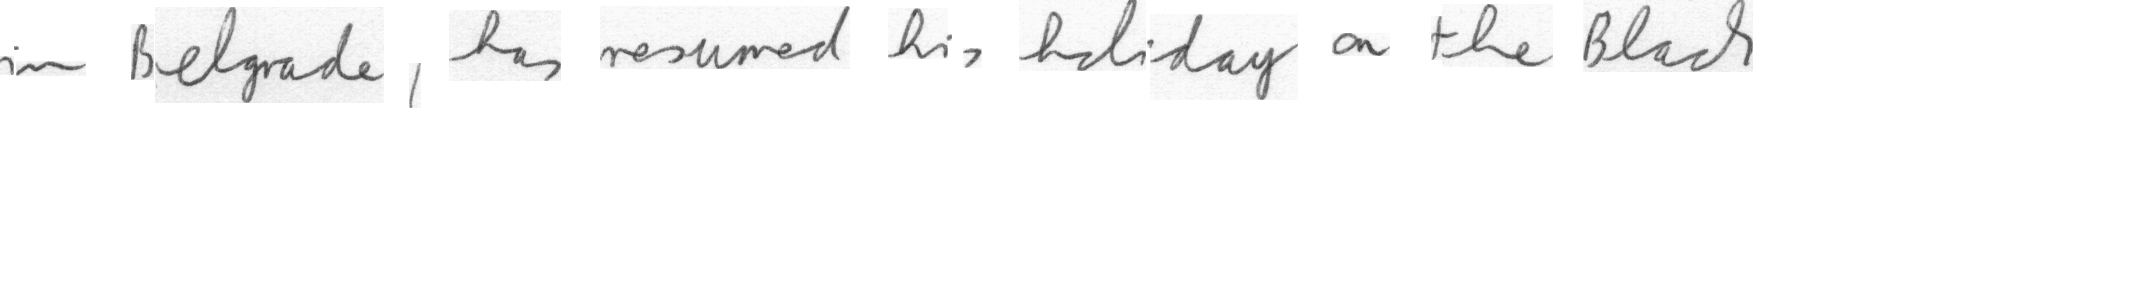 in Belgrade, has resumed his holiday on the Black